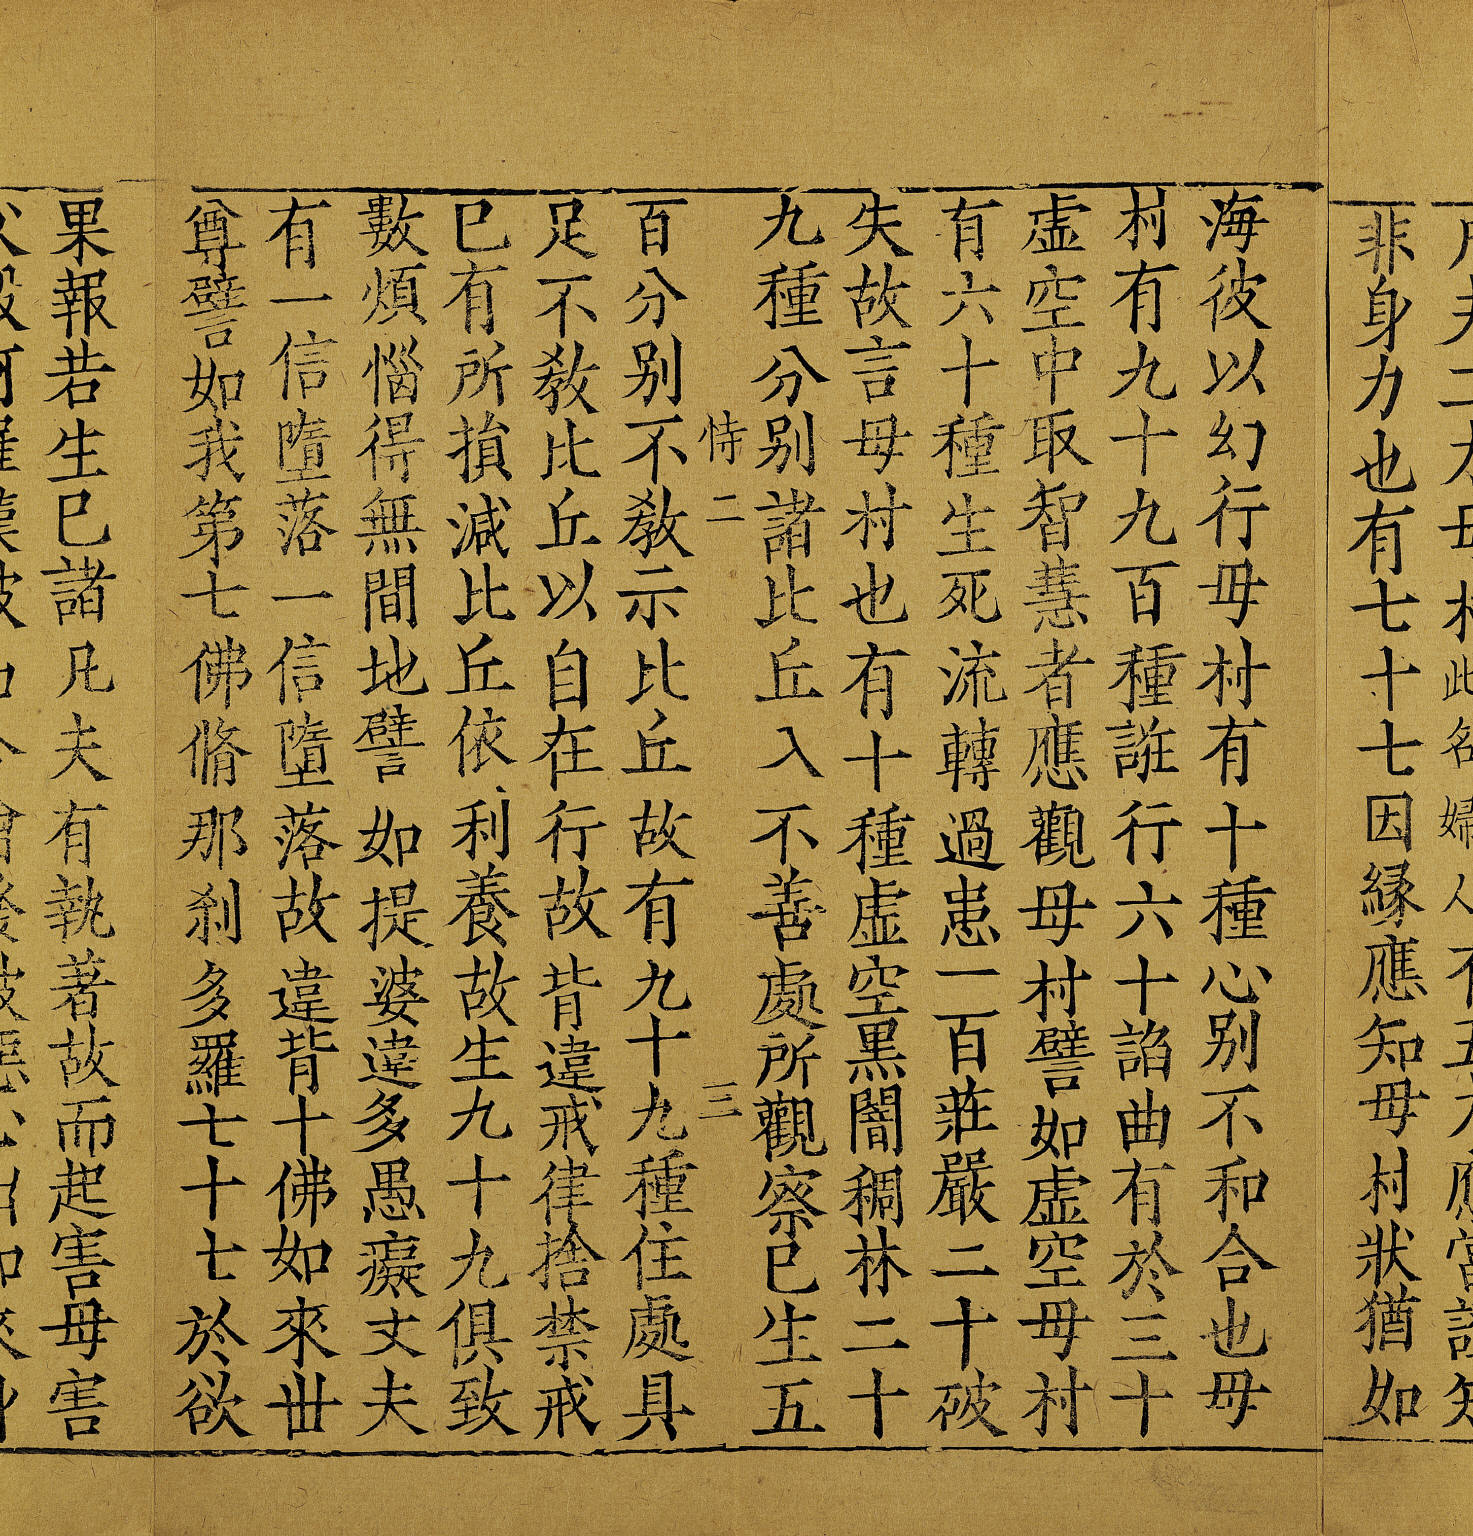 夫二母此名婦人
非身力也有七十七因縁應知毋村狀猶如
海彼以幻行毋村有十種心别不和合也毋
村有九十九百種誑行六十諂曲有於三十
虛空中取智慧者應觀毋村譬如虛空毋村
有六十種生死流轉過患一百莊嚴二十破
失故言毋村也有十種虛空黒闇稠林二十
九種分别諸比丘入不善處所觀察已生五
恃二 三
百分别不敎示比丘故有九十九種住處具
足不敎比丘以自在行故背違戒律捨禁戒
已有所損減比丘依利養故生九十九俱致
數煩惱得無間地譬如提婆違多愚癡丈夫
有一信墮落一信墮落故違背十佛如來丗
尊譬如我第七佛脩那刹多羅七十七於欲
果報若生已諸凡夫有執著故而起害毋害